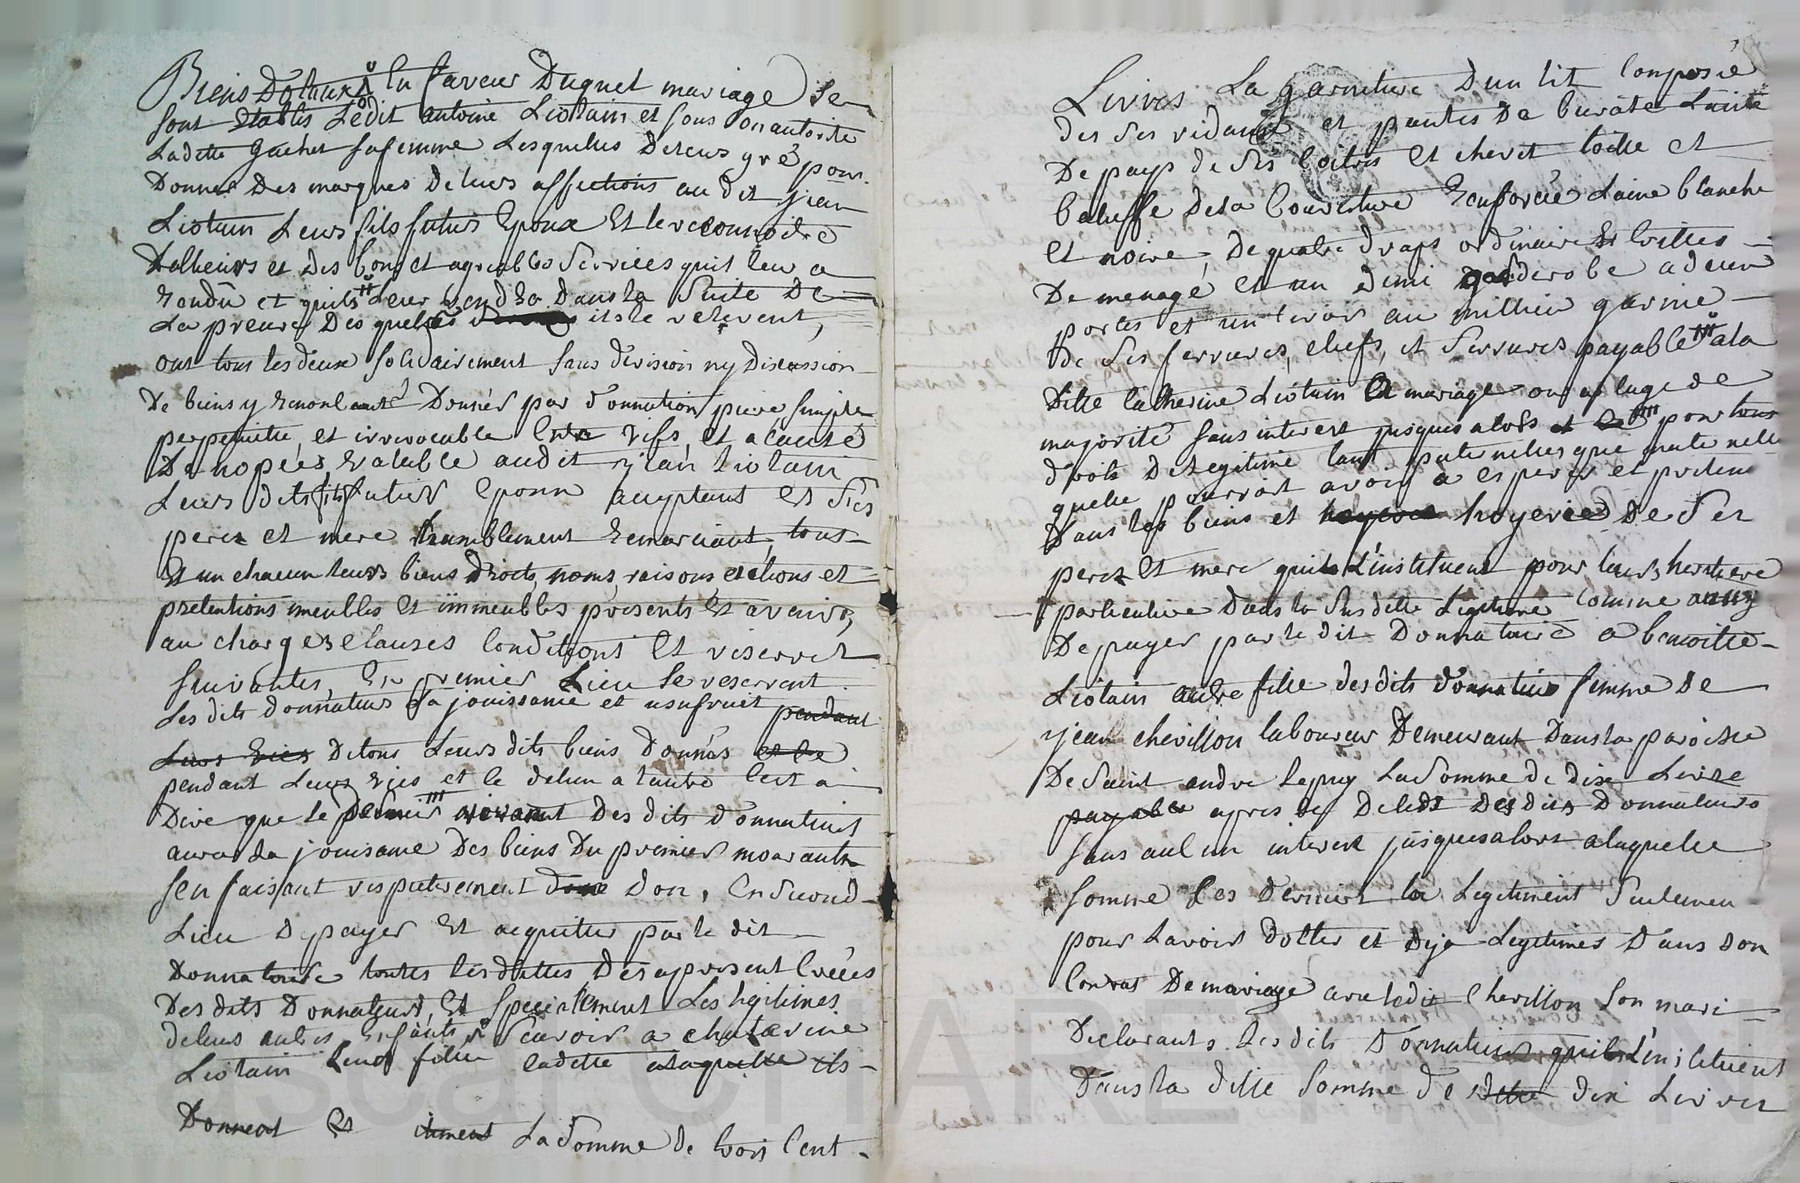 Biens Dotaux En faveur Duquel mariage Se
sont Etablis Ledit antoine Liotain et sous son autorite
Ladette gachet sa femme Lesquelles De leurs gré pour
Donner Des marques de leurs affections au dit jean
Liotain Leurs fils futur Epoux Et le recconnoitre
Dalheurs et des bons et agreables Services quil leur a
rendû et quils Leur rendra dans la Suite De
La preuve Desquelles ils le relevent,
ont tous les deux solidairement sans division ny Discussion
De biens y renoncant Donnés par donnation pure simple
perpetuelle et irrevocable Entre vifs, et a cause
De nopces valable audit jean Liotain
Leurs dit fils futur Epoux acceptant Et Ses
perez et mere humblement remerciant, tous
Et un chacun leurs biens Droits, noms, raisons, actions et
pretentions meubles Et immeubles presents Et avenirs
au charges Clauses Conditions Et reservez
suivantes, En premier Lieu Se reservent
Les dits donnateurs La jouissance et usufruit pendant
Leurs vies De tous Leurs dits biens Donnés et le
pendant Leurs vies et le delun a lautre Cest a
Dire que le dernier vivant Des dits donnateurs
aura La jouisance Des biens Du premier mourant
sen faisant respectivement Don, En Second
Lieu De payer Et acquitter par le dit
Donnataire toutes les dettes Des apresent Creées
Des dits Donnateurs, Et specialement Les legitimes
de leurs autres Enfants Scavoir a chaterine
Liotain Leur fille cadette alaquelle ils
Donnent Et La Somme de trois Cent
Livres La garniture Dun lit Composé
des Ses ridaux et pantes De burate Laite
De pays de Ses Coitres Et chevet toille et
baleffe De sa Couverture renforcée Laine blanche
et noire, De quatre draps ordinaires toilles
De menage Et un Demi garderobe a deux
portes et un tiroir au millieu garnie
De Ses ferrures, clefs, et Serrures payable a la
Ditte Catherine Liotain En mariage ou aslage de
majorité Sans interest jusques alors pour tous
droits De Legitime tant paternelles que maternelles
quelle pourroit avoir a esperer et pretend
Dans les biens et hoyerie De Ses
perez Et mere quils L'instituent pour leurs heritiere
particuliere Dans la Susdite Legitime Comme aussy
De payer par le dit Donnataire a benoitte
Liotain autre fille des dits donnateurs femme De
jean chevillon laboureur Demeurant Dans la paroisse
De Saint andre Lepuy La Somme de dix Livre
payable apres le Deledt Des dits Donnateurs
Sans aucun interest jusques alors alaquelle
Somme Ses Derniers la Legitiment Seulemen
pour Lavoir dotter et deja Legitimés Dans Son
Contrat De mariage avec ledit Chevillon Son mari
Declarants Lesdits Donnateurs quils L'instituent
Dans la ditte Somme de dix Livrez
Pascal CHAREYRON